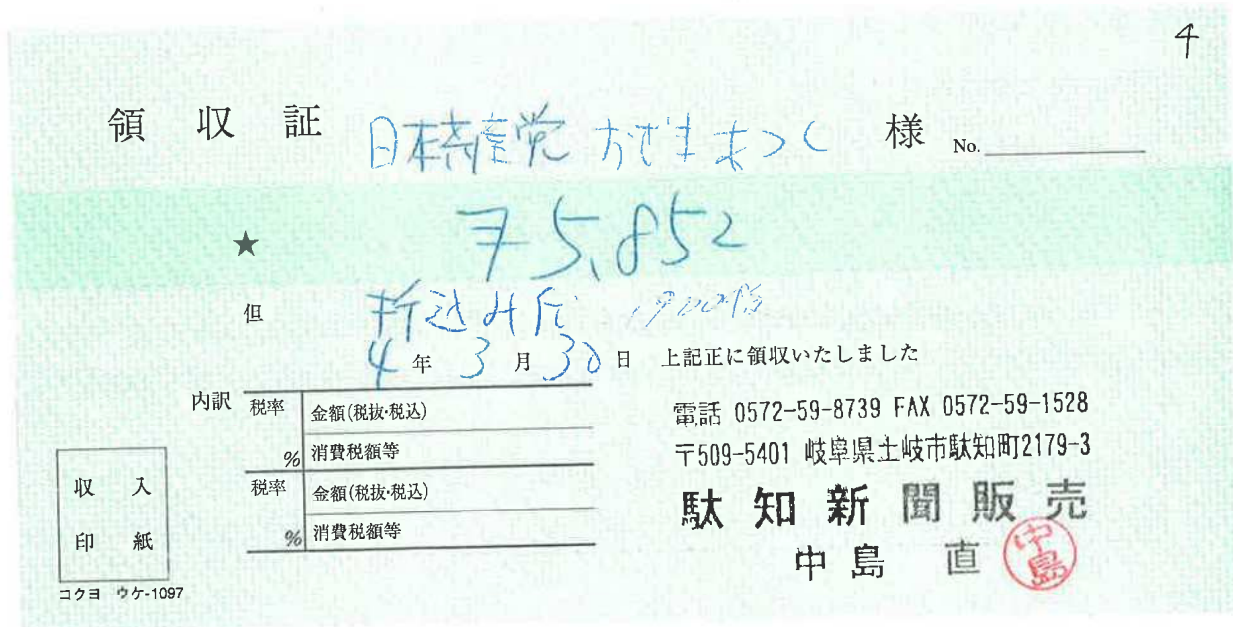 4
領 収 証 日本共産党 おぜきまつく 様 No.
★ 75,852
但 折込み代
4 年 3 月 30 日 上記正に領収いたしました
内訳 税率 金額(税抜・税込)
% 消費税額等
税率 金額(税抜・税込)
% 消費税額等
収 入
印 紙
コクヨ ウケ-1097
電話 0572-59-8739 FAX 0572-59-1528
〒509-5401 岐阜県土岐市駄知町2179-3
駄 知 新 聞 販 売
中 島 直
中島